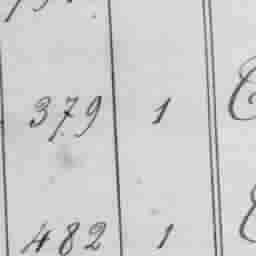 379 1
482 1